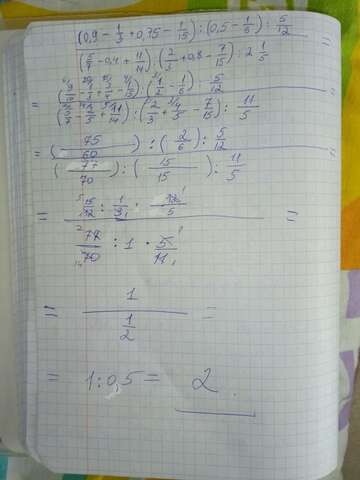 (0,9 - 1/3 + 0,75 - 1/15) : (0,5 - 1/6) : 5/12 =
(5/7 - 0,4 + 11/14) : (2/3 + 0,8 - 7/15) : 2 1/5
= (9/10 - 1/3 + 3/4 - 1/15) : (1/2 - 1/6) : 5/12 =
(5/7 - 2/5 + 11/14) : (2/3 + 4/5 - 7/15) : 11/5
= (75/60) : (2/6) : 5/12 =
(77/70) : (15/15) : 11/5
= 15/12 : 1/3 · 12/5 =
77/70 : 1 · 5/11
= 1 =
1/2
= 1 : 0,5 = 2